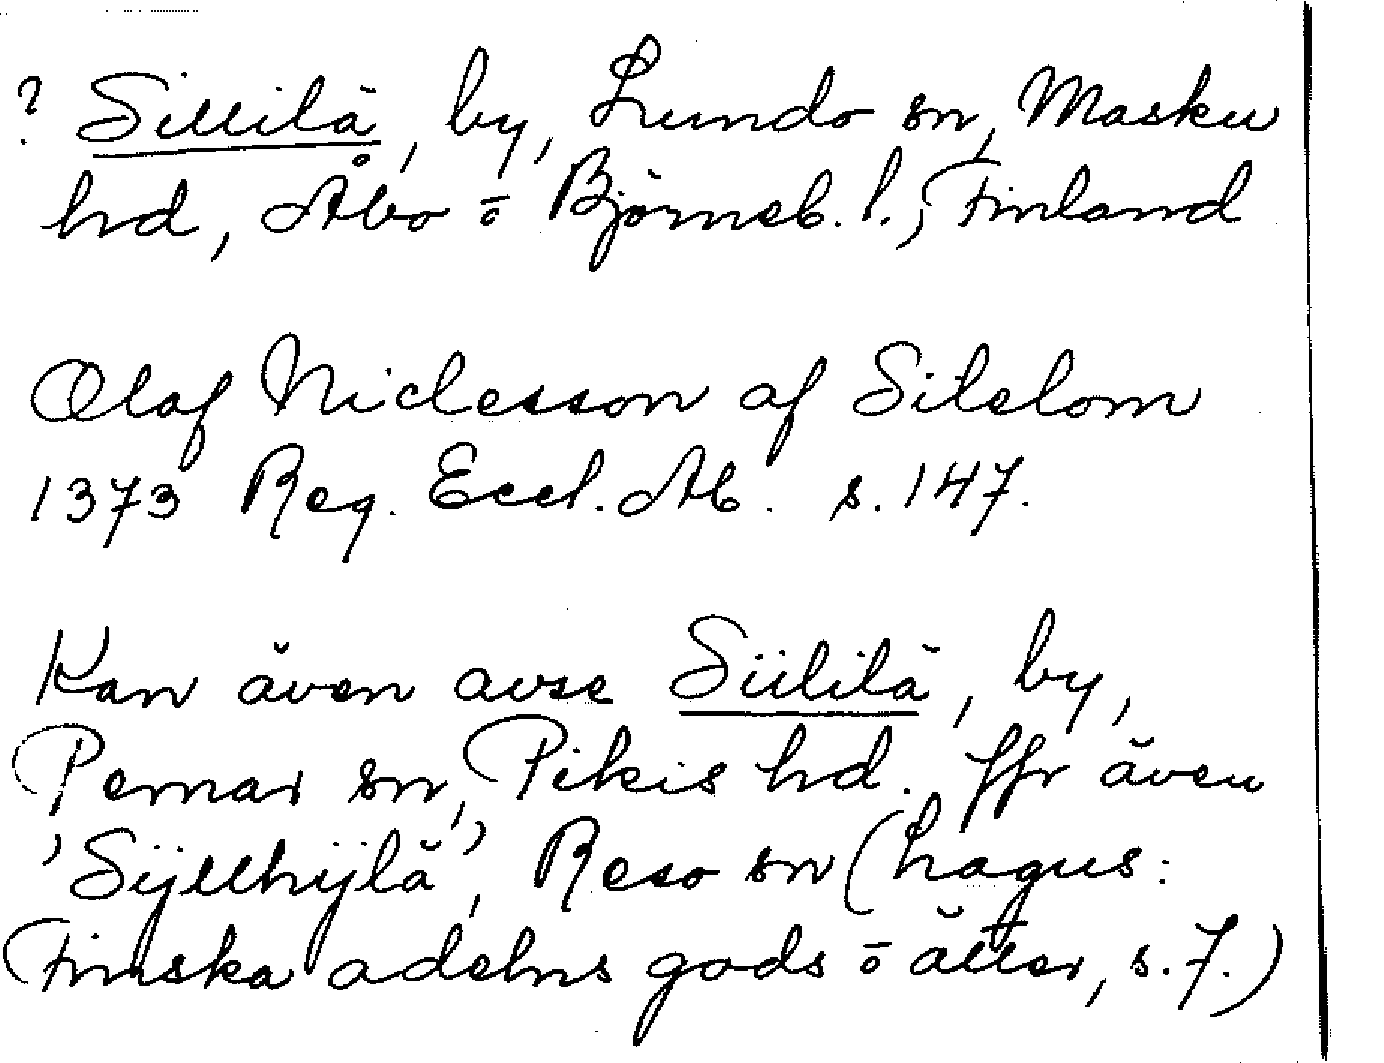 ? Sillilä, by, Lundo sn, Masku
hd, Åbo o Björneb. l., Finland
Olaf Niclesson af Silelom
1373 Reg. Eccl. Ab. s. 147.
Kan även avse Siililä, by,
Pemar sn, Pikis hd. Jfr även
'Sÿllhÿlä', Reso sn (Lagus:
Finska adelns gods o ätter, s. 7.)